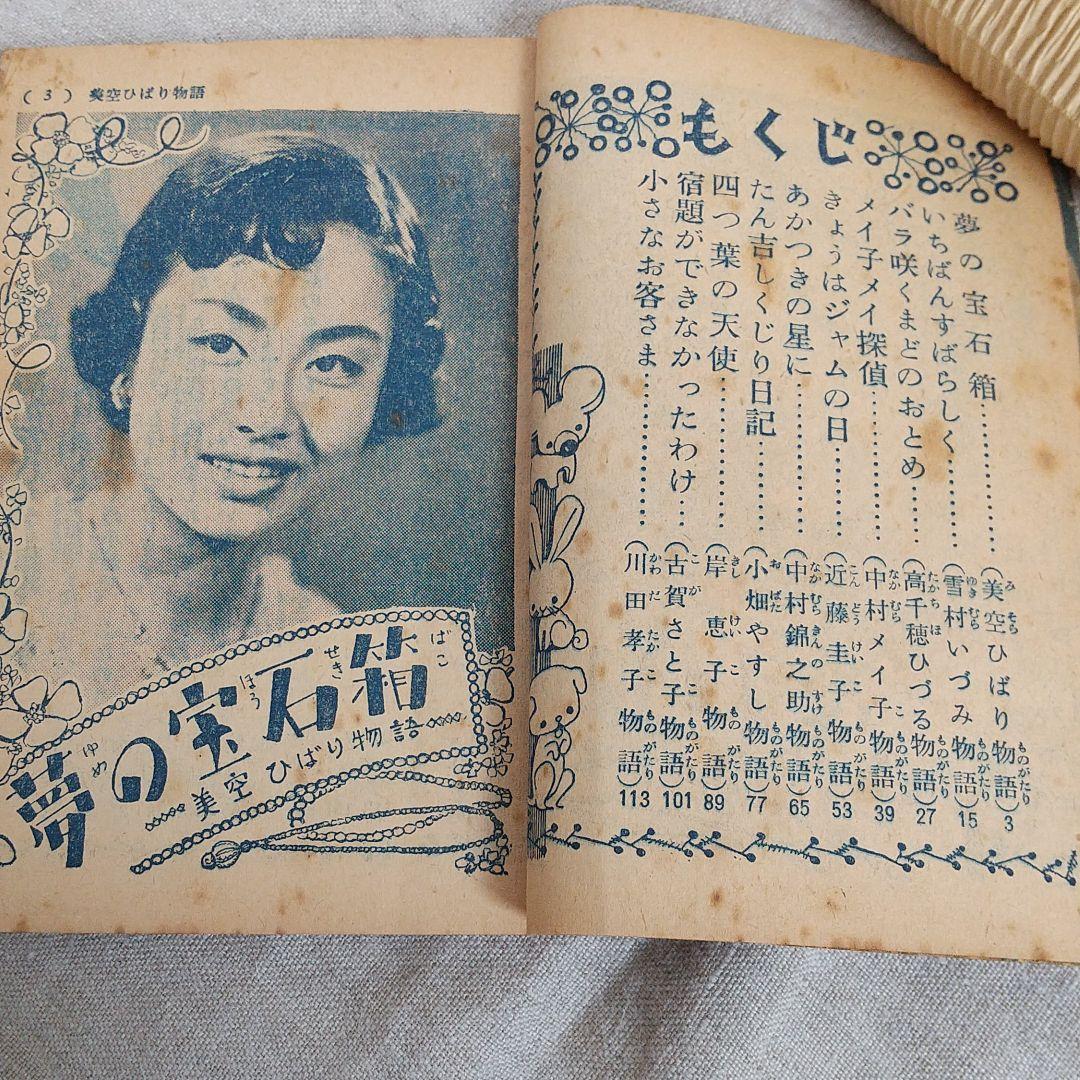 もくじ
夢の宝石箱…………(美空ひばり物語) 3
いちばんすばらしく……(雪村いづみ物語) 15
バラ咲くまどのおとめ…(高千穂ひづる物語) 27
メイ子メイ探偵…………(中村メイ子物語) 39
きょうはジャムの日……(近藤圭子物語) 53
あかつきの星に…………(中村錦之助物語) 65
たん吉しくじり日記……(小畑やすし物語) 77
四つ葉の天使……………(岸恵子物語) 89
宿題ができなかったわけ…(古賀さと子物語) 101
小さなお客さま…………(川田孝子物語) 113
(3) 美空ひばり物語
夢の宝石箱
……美空ひばり物語……